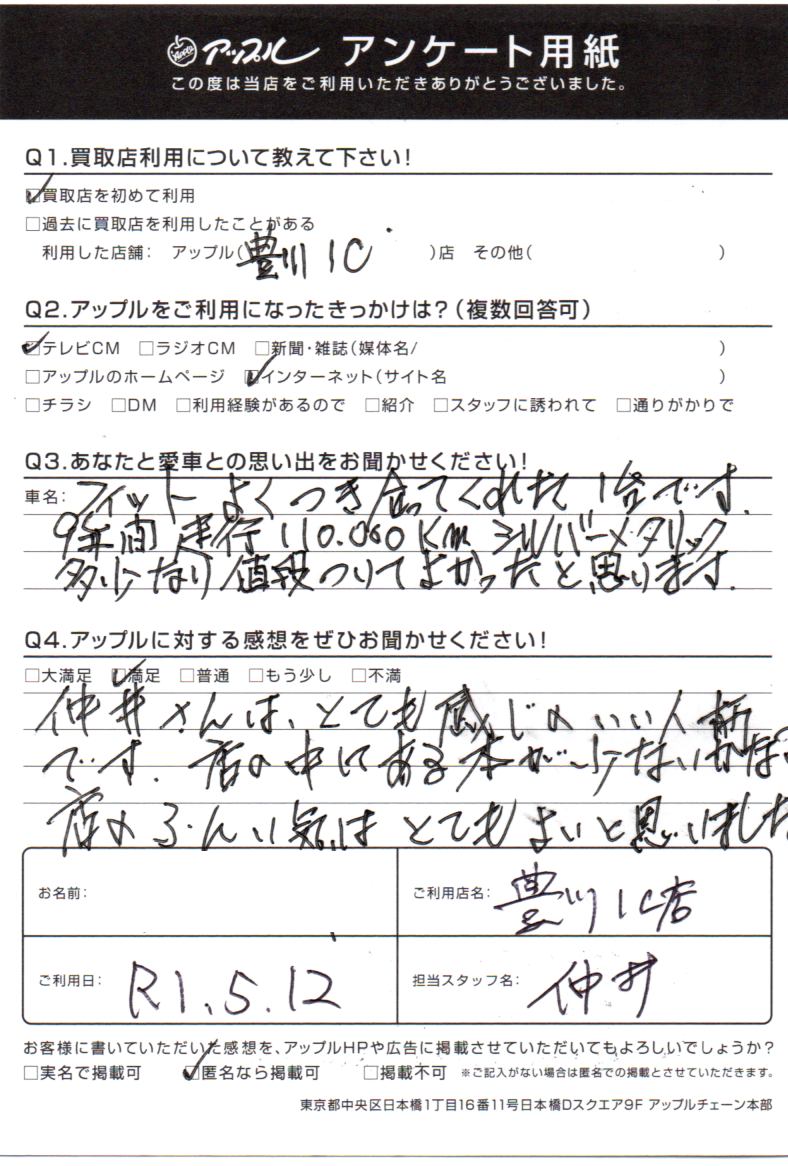 アップル アンケート用紙
この度は当店をご利用いただきありがとうございました。
Q1.買取店利用について教えて下さい!
☑買取店を初めて利用
□過去に買取店を利用したことがある
利用した店舗: アップル(豊川IC)店 その他( )
Q2.アップルをご利用になったきっかけは?(複数回答可)
☑テレビCM □ラジオCM □新聞・雑誌(媒体名/ )
□アップルのホームページ ☑インターネット(サイト名 )
□チラシ □DM □利用経験があるので □紹介 □スタッフに誘われて □通りがかりで
Q3.あなたと愛車との思い出をお聞かせください!
車名: フィット よくつき合ってくれた1台です.
9年間 走行 110.000Km シルバーメタリック
多少なり値段ついてよかったと思います.
Q4.アップルに対する感想をぜひお聞かせください!
□大満足 ☑満足 □普通 □もう少し □不満
仲井さんは、とても感じのいい人柄
です. 店の中にある本が少ないかな
店のふんい気はとてもよいと思いました
お名前:
ご利用店名: 豊川IC店
ご利用日: R1.5.12
担当スタッフ名: 仲井
お客様に書いていただいた感想を、アップルHPや広告に掲載させていただいてもよろしいでしょうか?
□実名で掲載可 ☑匿名なら掲載可 □掲載不可 ※ご記入がない場合は匿名での掲載とさせていただきます。
東京都中央区日本橋1丁目16番11号日本橋Dスクエア9F アップルチェーン本部